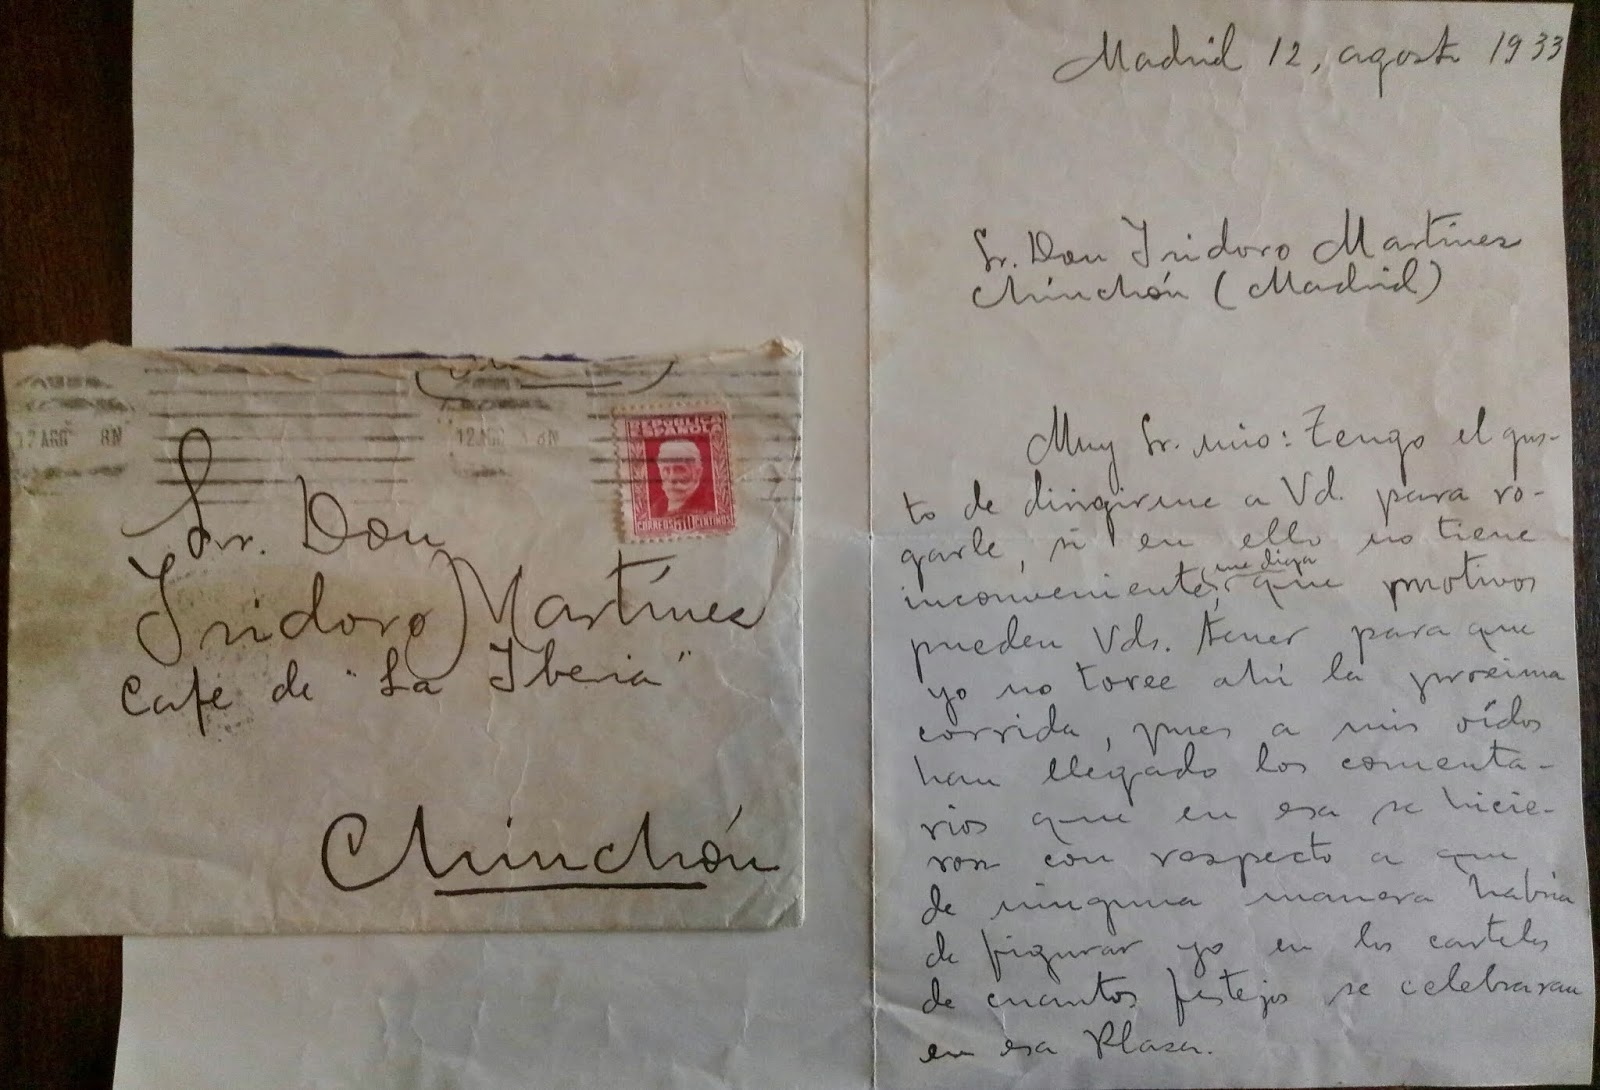 Madrid 12, agosto 1933
Sr. Don Isidoro Martínez
Chinchón (Madrid)
Muy Sr. mio: Tengo el gus-
to de dirigirme a Vd. para ro-
garle, si en ello no tiene
inconveniente, me diga que motivos
pueden Vds. tener para que
yo no toree ahí la proxima
corrida, pues a mis oídos
han llegado los comenta-
rios que en esa se hicie-
ron con respecto a que
de ninguna manera habria
de figurar yo en los carteles
de cuantos festejos se celebraran
en esa Plaza.
12 AGO 8N
12 AGO 8N
REPÚBLICA
ESPAÑOLA
CORREOS CENTIMOS
Sr. Don
Isidoro Martínez
Cafe de "La Iberia"
Chinchón